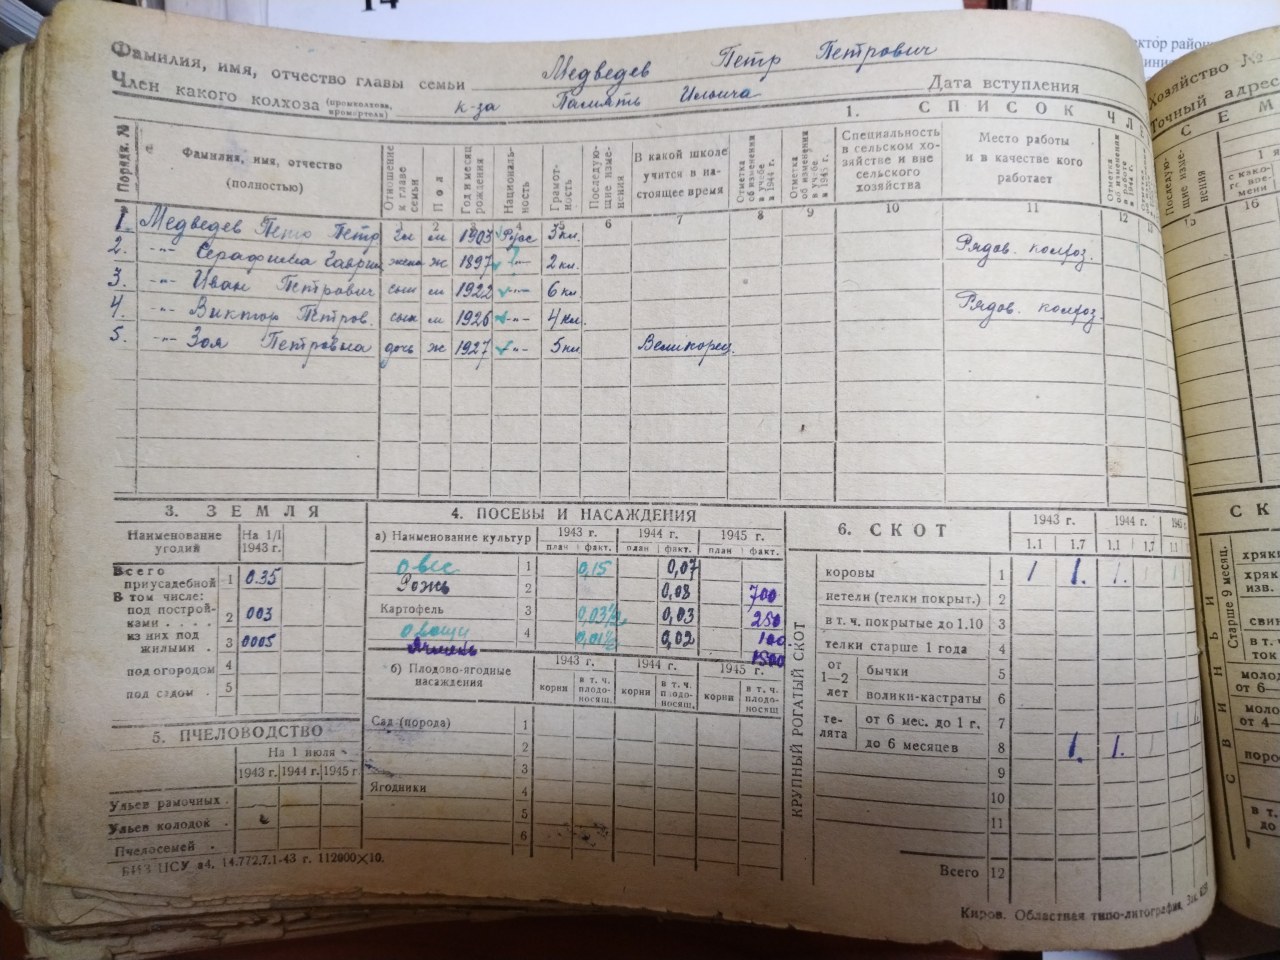 14
ектор район
Фамилия, имя, отчество главы семьи Медведев Петр Петрович
Член какого колхоза (промколхоза, промартели) к-за Память Ильича Дата вступления
1. СПИСОК ЧЛЕ
Порядк. № Фамилия, имя, отчество (полностью) Отношение к главе семьи Пол Год и месяц рождения Националь-ность Грамот-ность Последую-щие изме-нения В какой школе учится в на-стоящее время Отметка об изменении в учебе в 1944 г. Отметка об изменении в учебе в 1945 г. Специальность в сельском хо-зяйстве и вне сельского хозяйства Место работы и в качестве кого работает
2 4 5 6 7 8 9 10 11 12
1. Медведев Петр Петр м 1903 3 кл.
2. -"- Серафима Гаврил жена ж 1897 -"- 2 кл. Рядов. колхоз.
3. -"- Иван Петрович сын м 1922 -"- 6 кл
4. -"- Виктор Петров. сын м 1926 -"- 4 кл. Рядов. колхоз.
5. -"- Зоя Петровна дочь ж 1927 -"- 5 кл Великорец.
3. ЗЕМЛЯ
Наименование угодий На 1/I 1943 г.
Всего приусадебной 1 0.35
В том числе:
под построй-ками . . . . 2 003
из них под жилыми . 3 0005
под огородом 4
под садом . 5
5. ПЧЕЛОВОДСТВО
На 1 июля
1943 г. 1944 г. 1945 г.
Ульев рамочных .
Ульев колодок .
Пчелосемей .
4. ПОСЕВЫ И НАСАЖДЕНИЯ
а) Наименование культур 1943 г. 1944 г. 1945 г.
план факт. план факт. план факт.
овес 1 0,15 0,07
Рожь 2 0,08 700
Картофель 3 0,03 250
овощи 4 0,02 100
Ячмень 1500
б) Плодово-ягодные насаждения 1943 г. 1944 г. 1945 г.
корни в т. ч. плодо-носящ. корни в т. ч. плодо-носящ. корни в т. ч. плодо-носящ
Сад (порода) 1
2
3
Ягодники 4
5
6
6. СКОТ 1943 г. 1944 г.
1.1 1.7 1.1 1.7
КРУПНЫЙ РОГАТЫЙ СКОТ
коровы 1 1 1. 1.
нетели (телки покрыт.) 2
в т. ч. покрытые до 1.10 3
телки старше 1 года 4
от 1—2 лет бычки 5
волики-кастраты 6
те-лята от 6 мес. до 1 г. 7
до 6 месяцев 8 1. 1.
9
10
11
Всего 12
Киров. Областная типо-литография,
Хозяйство №
Точный адрес
СЕМ
Последую-щие изме-нения
15 16
СК
СВИНЬИ
Старше 9 месяц.
хряк
хряк изв.
свин
в т. ток
молод от 6—
моло от 4—
поро
в т. до